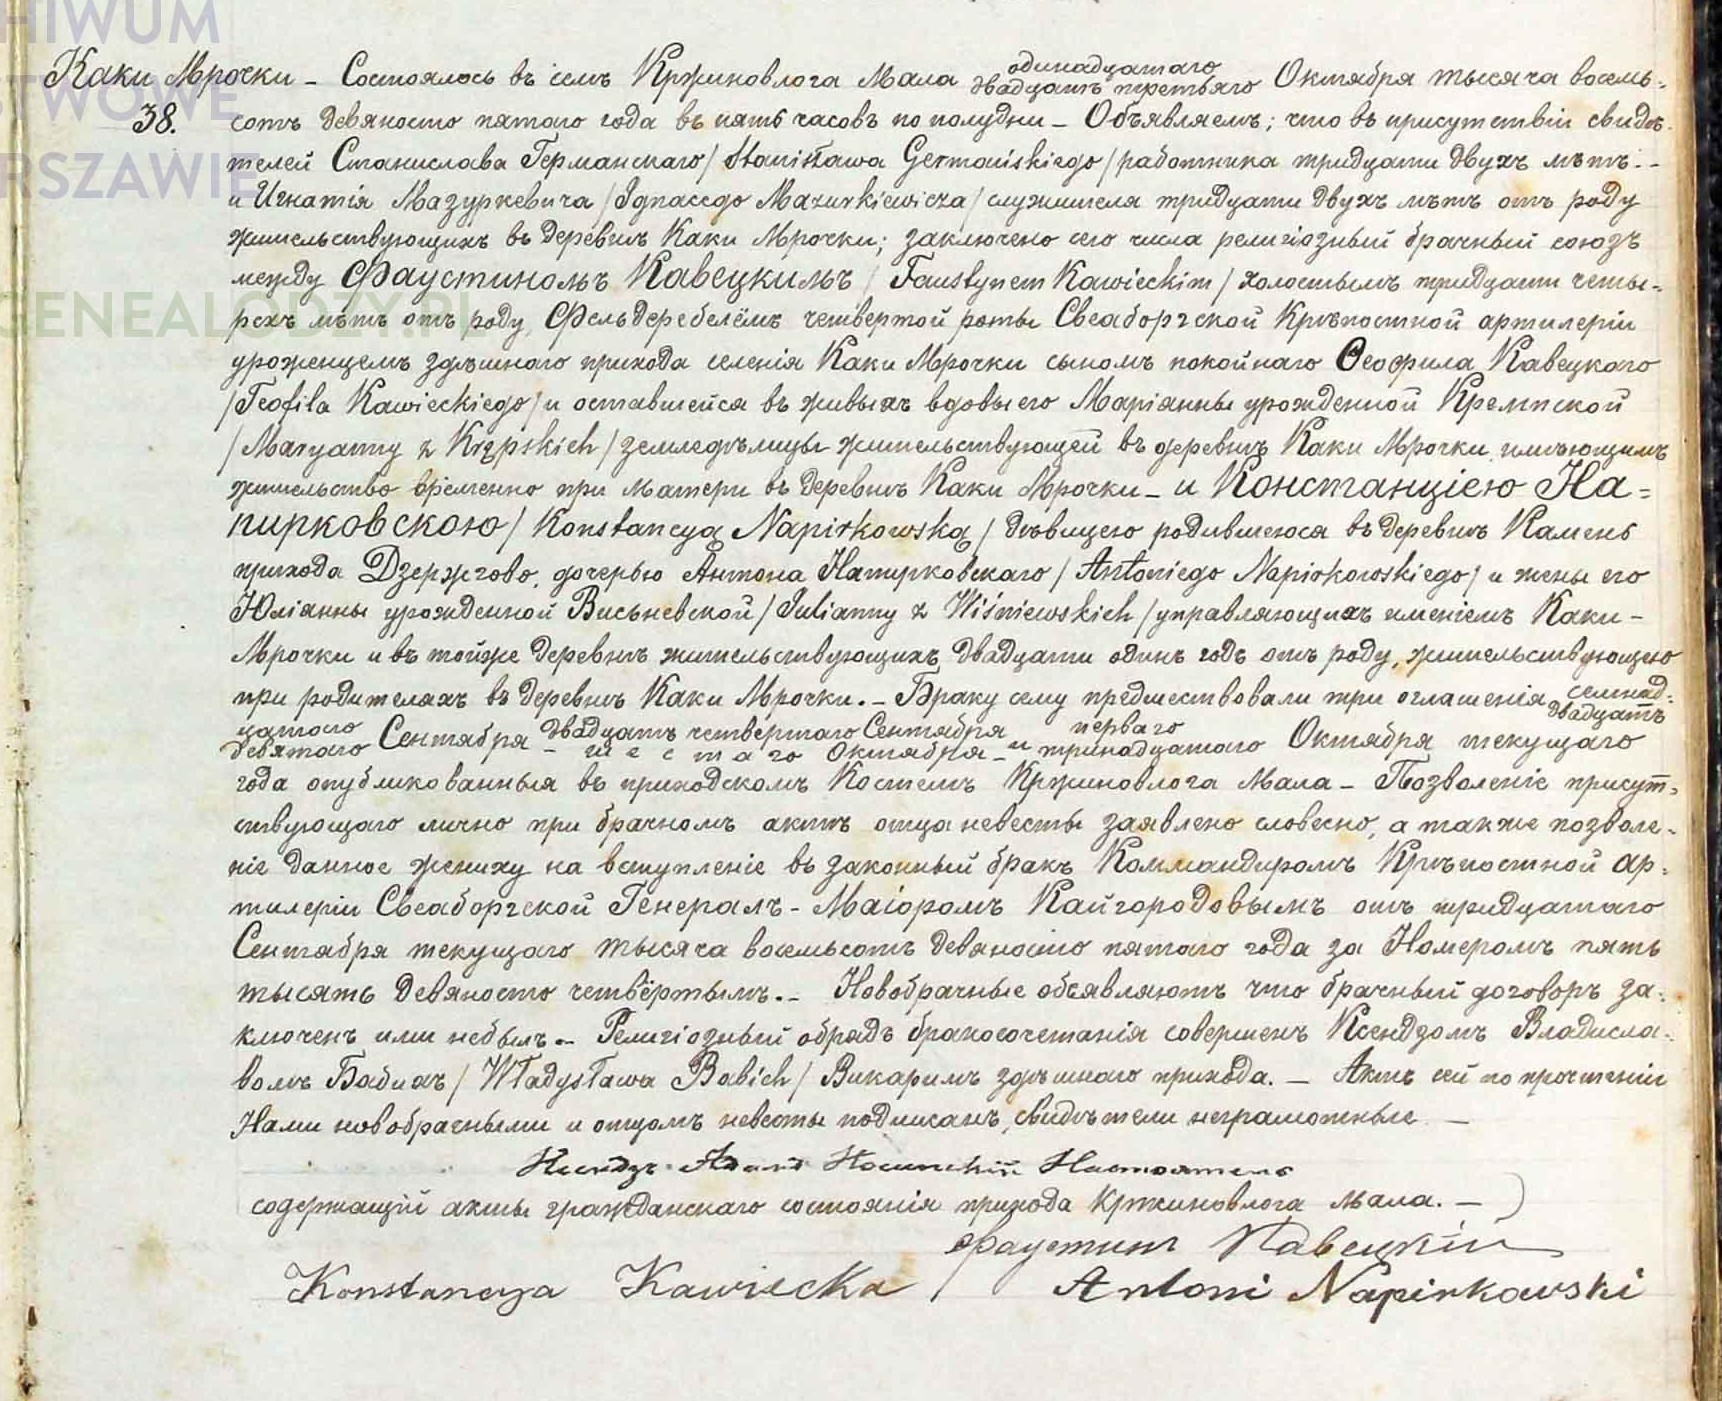 HIWUM
STWOWE
RSZAWIE
GENEALODZY.PL
Каки Мрочки – Состоялось въ селѣ Кржиновлога Мала одинадцатаго / двадцать третьяго Октября тысяча восемь-
38. сотъ девяносто пятаго года въ пять часовъ по полудни – Объявляемъ; что въ присутствіи свидѣ-
телей Станислава Германскаго / Stanisława Germańskiego / работника тридцати двухъ лѣтъ. –
и Игнатія Мазуркевича / Ignacego Mazurkiewicza / служителя тридцати двухъ лѣтъ отъ роду
жительствующихъ въ деревнѣ Каки Мрочки; заключено сего числа религіозный брачный союзъ
между Фаустиномъ Кавецкимъ / Faustynem Kawieckim / холостымъ тридцати четы-
рехъ лѣтъ отъ роду, Фельдфебелемъ четвертой роты Свеаборгской Крѣпостной артилеріи
уроженцемъ здѣшнаго прихода селенія Каки Мрочки сыномъ покойнаго Ѳеофила Кавецкаго
/ Teofila Kawieckiego / и оставшейся въ живыхъ вдовы его Маріанны урожденной Кремпской
/ Maryanny z Krępskich / земледѣлицы жительствующей въ деревнѣ Каки Мрочки имѣющимъ
жительство временно при матери въ деревнѣ Каки Мрочки – и Констанціею На-
пирковскою / Konstancyą Napirkowską / дѣвицею родившеюся въ деревнѣ Камень
прихода Дзержгово, дочерью Антона Напирковскаго / Antoniego Napirkowskiego / и жены его
Юліанны урожденной Висьневской / Julianny z Wiśniewskich / управляющихъ именіемъ Каки –
Мрочки и въ тойже деревнѣ жительствующихъ двадцати одинъ годъ отъ роду, жительствующею
при родителяхъ въ деревнѣ Каки Мрочки. – Браку сему предшествовали три оглашенія семнад- / двадцать
цатаго / девятаго Сентября – двадцать четвертаго Сентября / шестаго Октября – и перваго / тринадцатаго Октября текущаго
года опубликованныя въ приходскомъ Костелѣ Кржиновлога Мала – Позволеніе присут-
ствующаго лично при брачномъ актѣ отца невесты заявлено словесно, а также позволе-
ніе данное жениху на вступленіе въ законный бракъ Коммандиромъ Крѣпостной ар-
тилеріи Свеаборгской Генералъ-Маіоромъ Кайгородовымъ отъ тридцатаго
Сентября текущаго тысяча восемьсотъ девяносто пятаго года за Номеромъ пять
тысять девяносто четвёртымъ. – Новобрачные объявляютъ что брачный договоръ за-
ключенъ ими небылъ. – Религіозный обрядъ бракосочетанія совершенъ Ксендзомъ Владисла-
вомъ Бабихъ / Władysława Babich / Викаримъ здѣшнаго прихода. – Актъ сей по прочтеніи
Нами новобрачными и отцомъ невесты подписанъ, свидѣтели неграмотные –
Ксендзъ Адамъ Настоятель
содержащій акты гражданскаго состоянія прихода Кржиновлога Мала. –
Фаустинъ Кавецкій
Konstancyja Kawiecka / Antoni Napirkowski